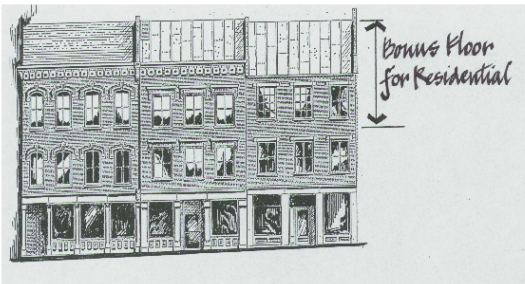 Bonus Floor
for Residential